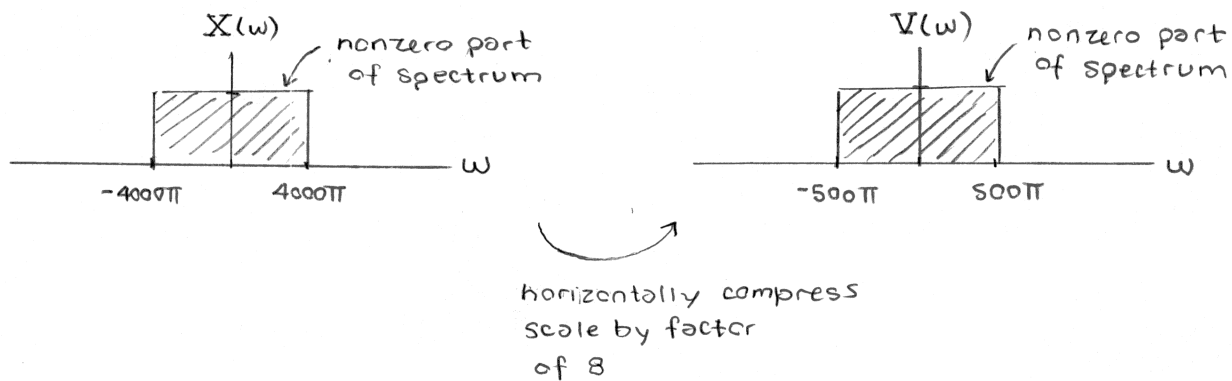 X(ω)
nonzero part
of spectrum
ω
-4000π
4000π
V(ω)
nonzero part
of spectrum
ω
-500π
500π
horizontally compress
scale by factor
of 8